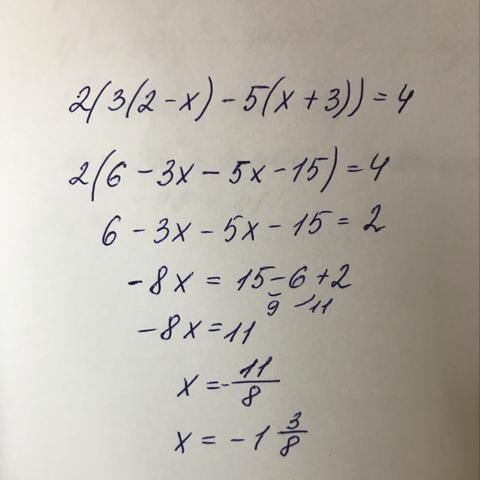 2(3(2-x)-5(x+3))=4
2(6-3x-5x-15)=4
6-3x-5x-15=2
-8x=15-6+2
9 11
-8x=11
x=-11/8
x=-1 3/8